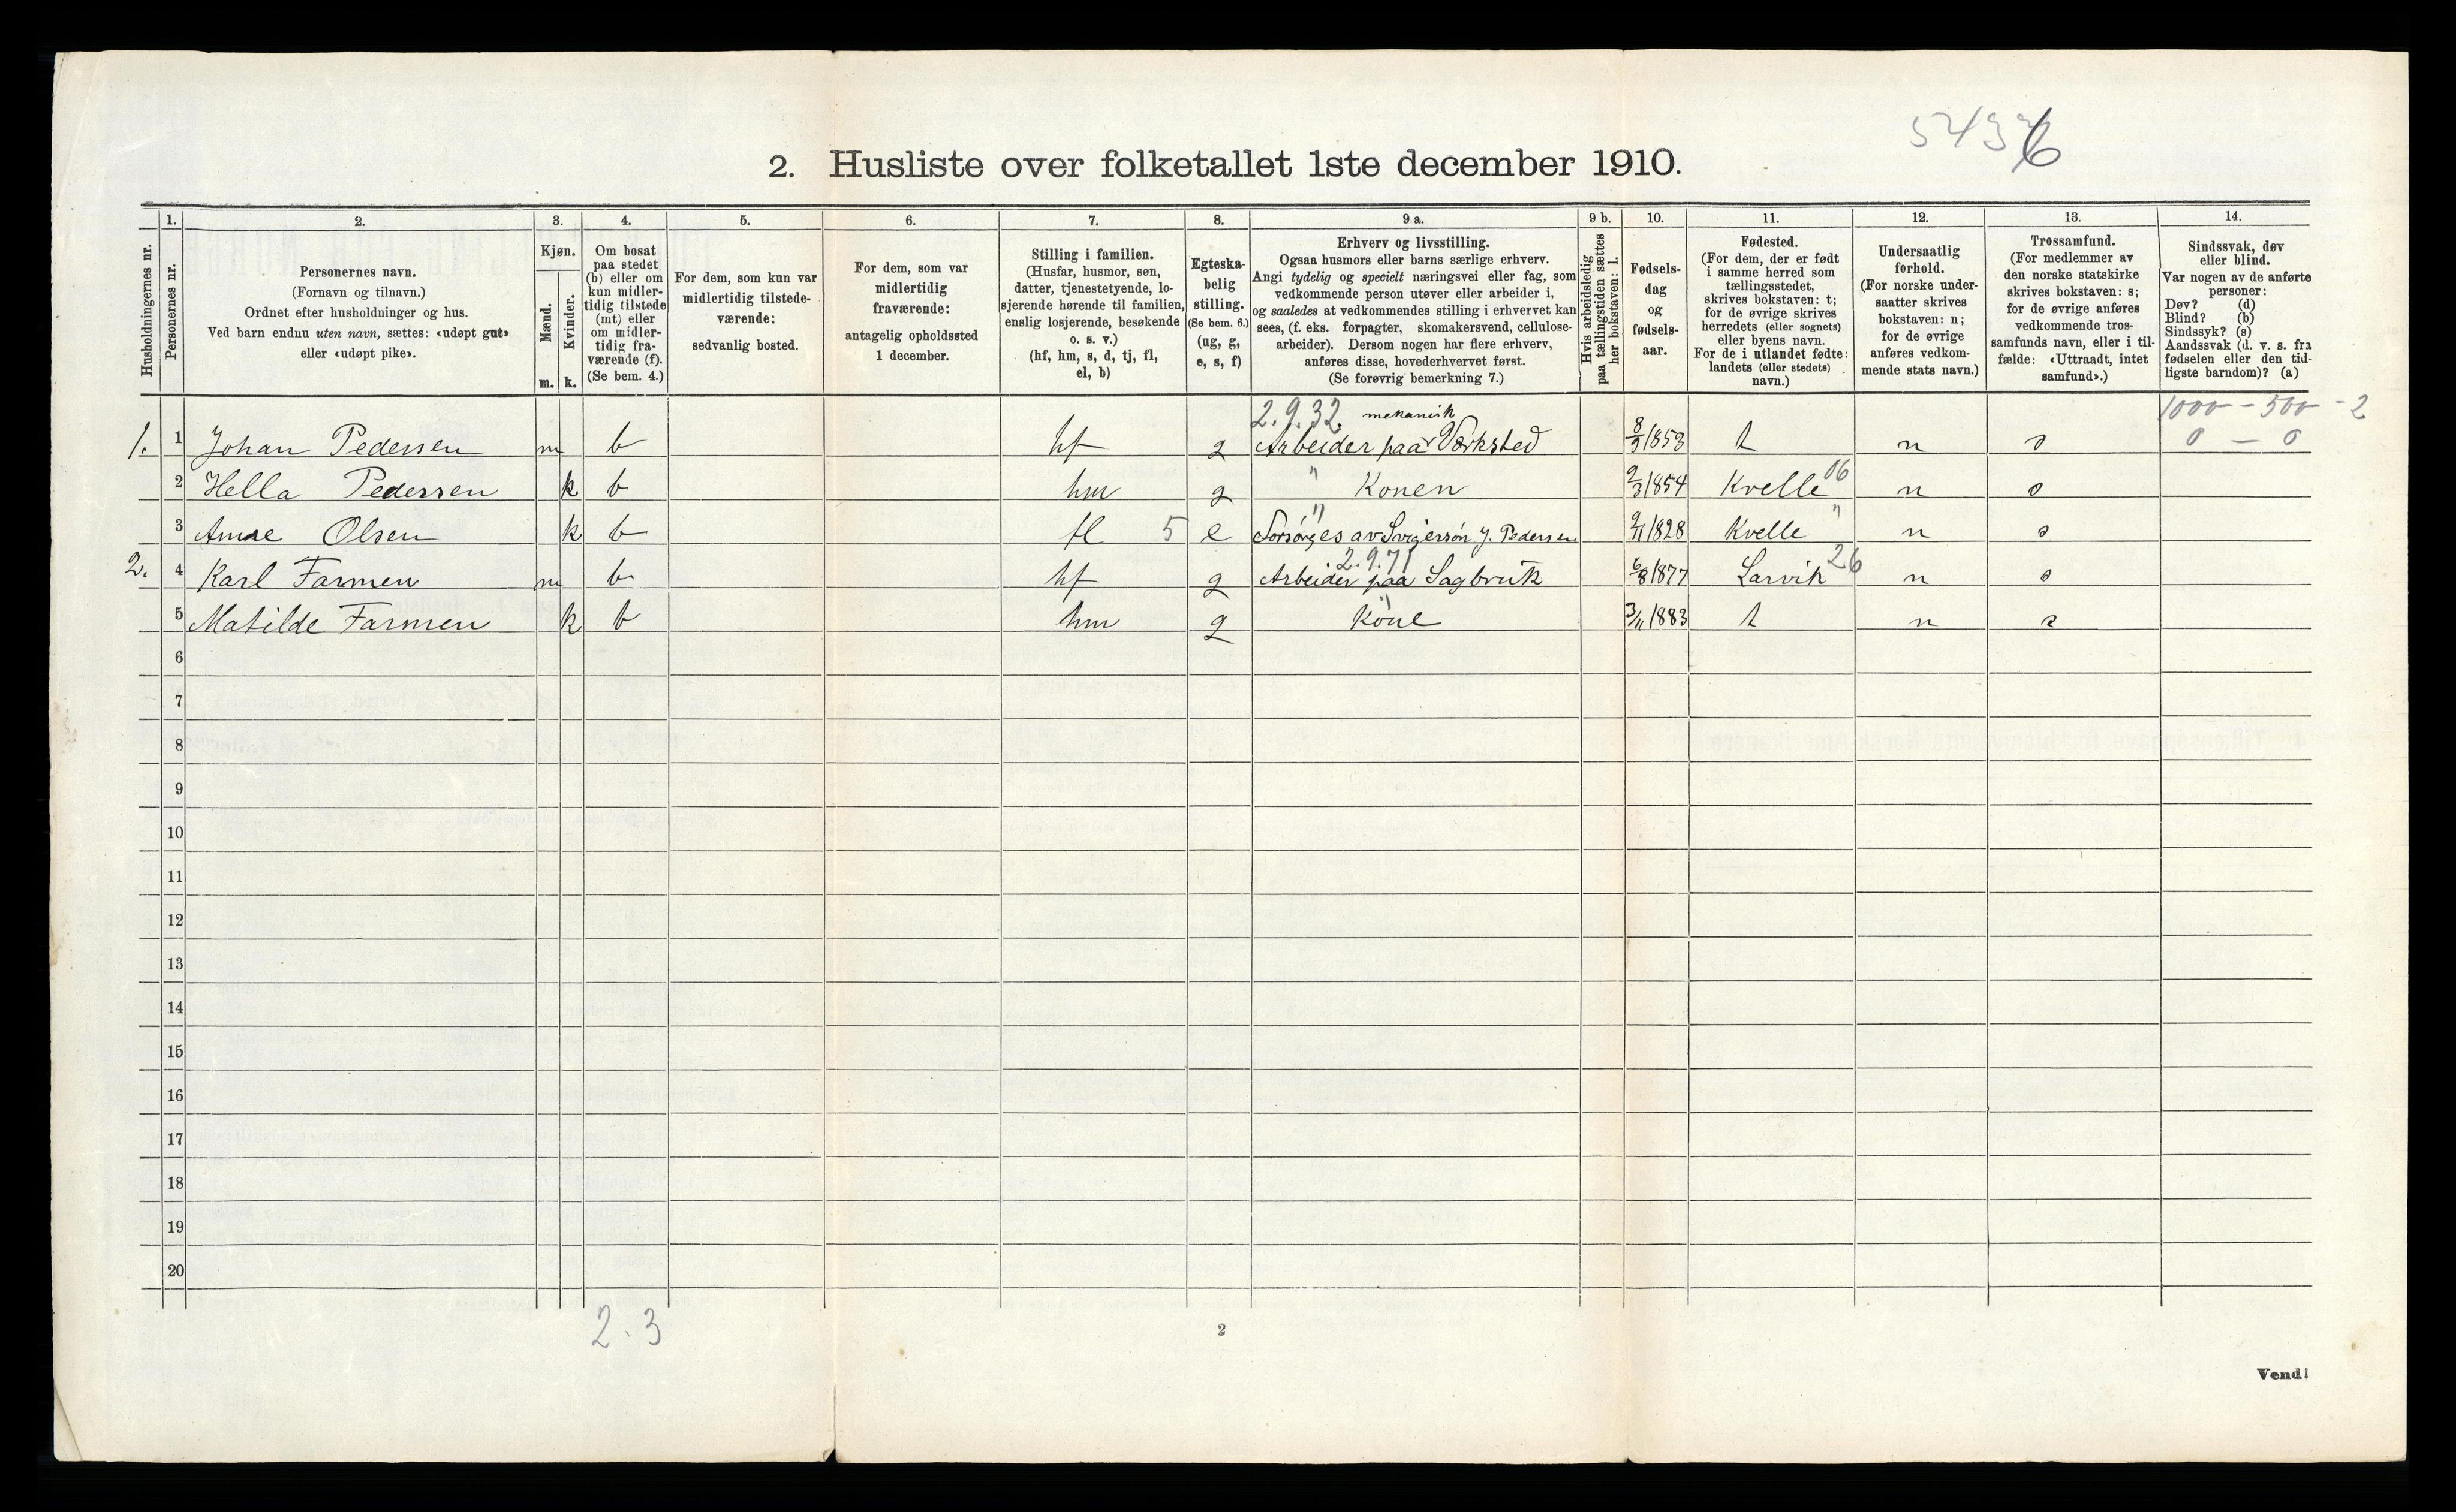 5436
2. Husliste over folketallet 1ste december 1910.
Husholdningernes nr.
1.
Personernes nr.
2.
Personernes navn.
(Fornavn og tilnavn.)
Ordnet efter husholdninger og hus.
Ved barn endnu uten navn, sættes: «udøpt gut»
eller «udøpt pike».
3.
Kjøn.
Mænd.
m.
Kvinder.
k.
4.
Om bosat
paa stedet
(b) eller om
kun midler-
tidig tilstede
(mt) eller
om midler-
tidig fra-
værende (f).
(Se bem. 4.)
5.
For dem, som kun var
midlertidig tilstede-
værende:
sedvanlig bosted.
6.
For dem, som var
midlertidig
fraværende:
antagelig opholdssted
1 december.
7.
Stilling i familien.
(Husfar, husmor, søn,
datter, tjenestetyende, lo-
sjerende hørende til familien,
enslig losjerende, besøkende
o. s. v.)
(hf, hm, s, d, tj, fl,
el, b)
8.
Egteska-
belig
stilling.
(Se bem. 6.)
(ug, g,
e, s, f)
9 a.
Erhverv og livsstilling.
Ogsaa husmors eller barns særlige erhverv.
Angi tydelig og specielt næringsvei eller fag, som
vedkommende person utøver eller arbeider i,
og saaledes at vedkommendes stilling i erhvervet kan
sees, (f. eks. forpagter, skomakersvend, cellulose-
arbeider). Dersom nogen har flere erhverv,
anføres disse, hovederhvervet først.
(Se forøvrig bemerkning 7.)
9 b.
Hvis arbeidsledig
paa tællingstiden sættes
her bokstaven: l.
10.
Fødsels-
dag
og
fødsels-
aar.
11.
Fødested.
(For dem, der er født
i samme herred som
tællingsstedet,
skrives bokstaven: t;
for de øvrige skrives
herredets (eller sognets)
eller byens navn.
For de i utlandet fødte:
landets (eller stedets)
navn.)
12.
Undersaatlig
forhold.
(For norske under-
saatter skrives
bokstaven: n;
for de øvrige
anføres vedkom-
mende stats navn.)
13.
Trossamfund.
(For medlemmer av
den norske statskirke
skrives bokstaven: s;
for de øvrige anføres
vedkommende tros-
samfunds navn, eller i til-
fælde: «Uttraadt, intet
samfund».)
14.
Sindssvak, døv
eller blind.
Var nogen av de anførte
personer:
Døv? (d)
Blind? (b)
Sindssyk? (s)
Aandssvak (d. v. s. fra
fødselen eller den tid-
ligste barndom)? (a)
2.9.32 mekanisk 1000 - 500 - 2
1. 1 Johan Pedersen m b hf g Arbeider paa Værksted 8/9 1853 t n s 0 — 0
2 Hella Pedersen k b hm g " Konen 9/3 1854 Kvelle 06 n s
3 Anne Olsen k b fl 5 e " Forsørges av Svigersøn J. Pedersen 9/11 1828 Kvelle " n s
2.9.71
2. 4 Karl Farmen m b hf g Arbeider paa Sagbruk 6/8 1877 Larvik 26 n s
5 Matilde Farmen k b hm g " Kone 3/11 1883 t n s
6
7
8
9
10
11
12
13
14
15
16
17
18
19
20
2.3
2
Vend!